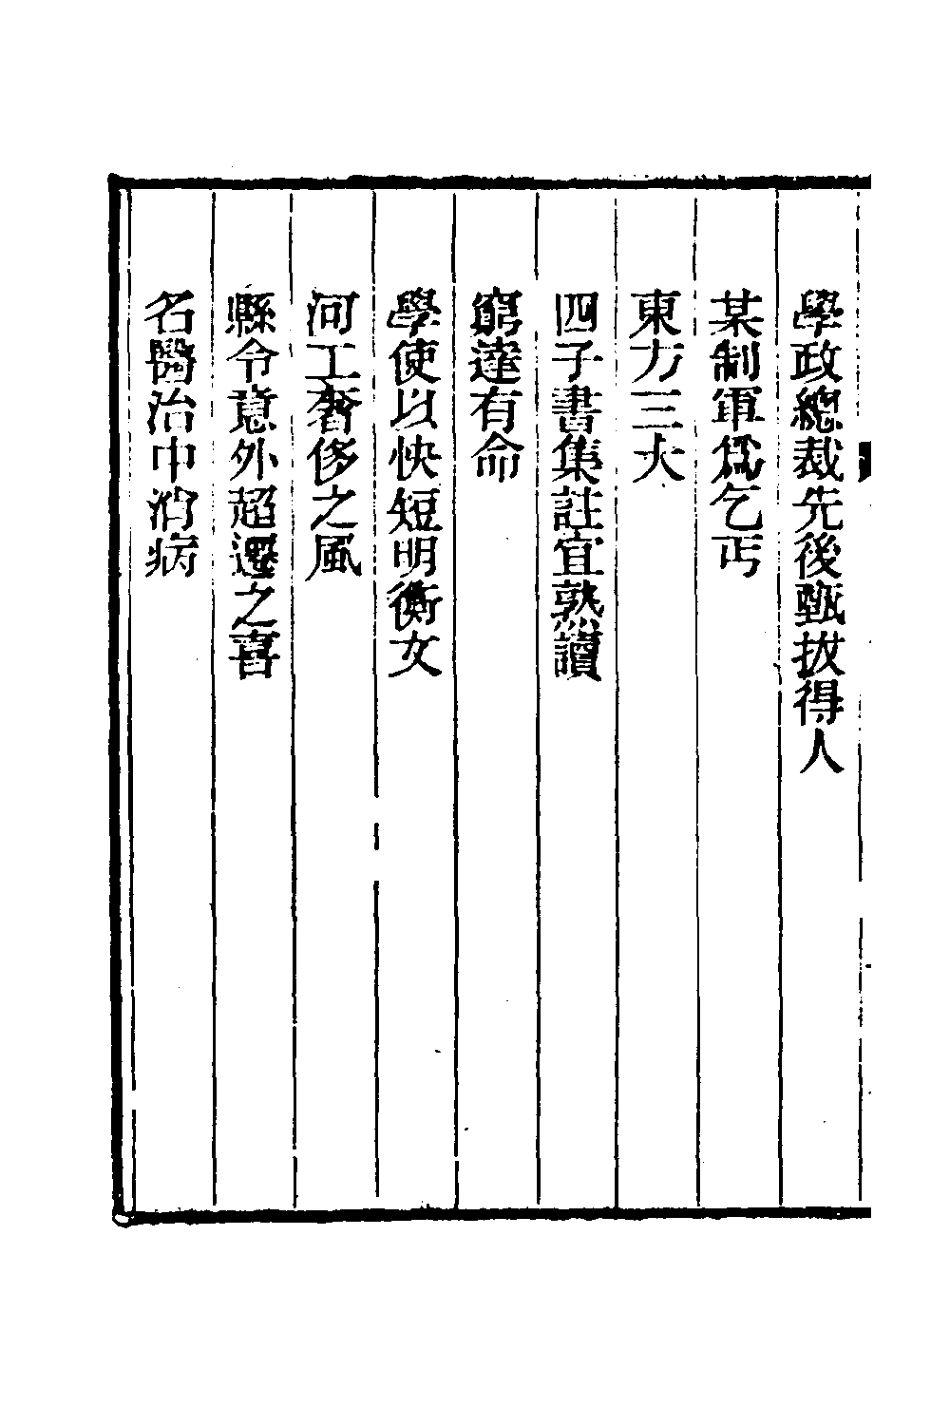 學政總裁先後甄拔得人
某制軍爲乞丐
東方三大
四子書集註宜熟讀
窮達有命
學使以快短明衡文
河工奢侈之風
縣令意外超遷之喜
名醫治中消病